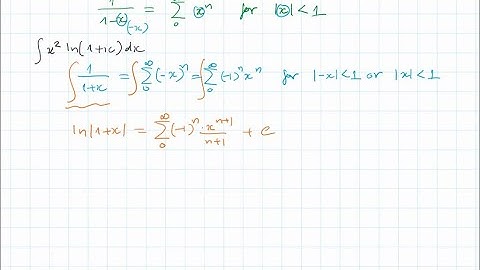 1/(1-x) = ∑₀^∞ xⁿ for |x| < 1
(-x)
∫ x² ln(1+x) dx
∫ 1/(1+x) = ∫ ∑₀^∞ (-x)ⁿ = ∫ ∑₀^∞ (-1)ⁿ xⁿ for |-x| < 1 or |x| < 1
ln|1+x| = ∑₀^∞ (-1)ⁿ · xⁿ⁺¹/(n+1) + C